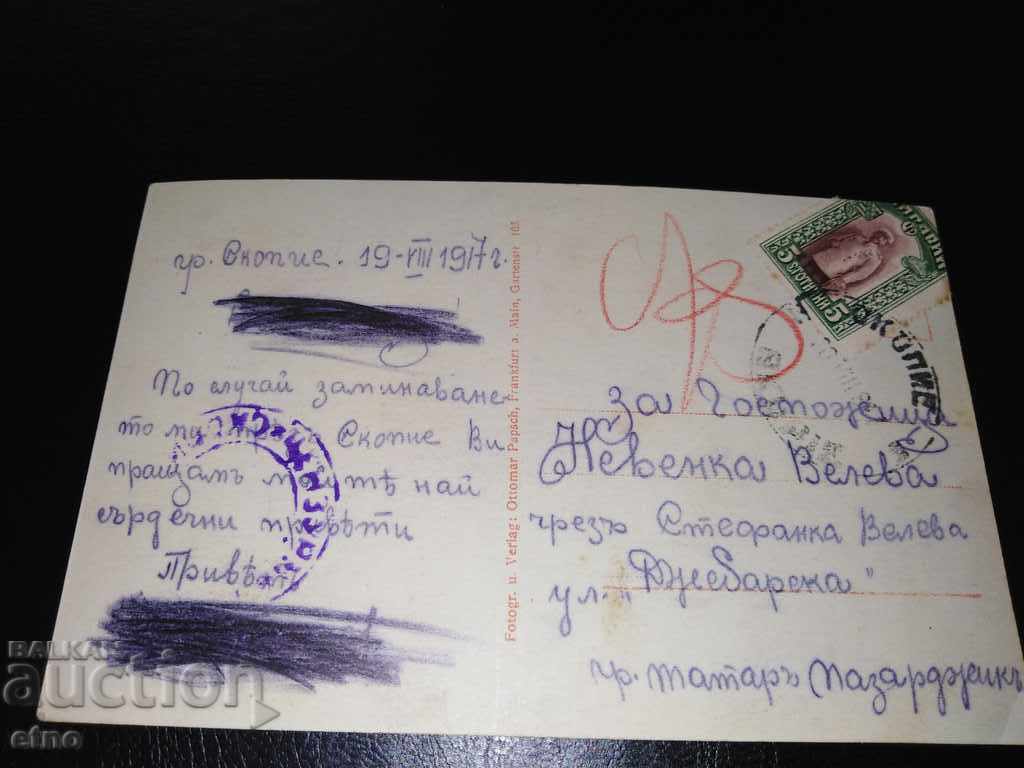 гр. Скопие. 19-VIII 1917 г.
По случай заминаване-
то ми Скопие Ви
пращамъ моитѣ най
сърдечни привѣти
Привѣт
Fotogr. u. Verlag: Ottomar Papsch, Frankfurt a. Main, Gartenstr 103
5 СТОТИНКИ 5
СКОПИЕ
За Госпожица
Невенка Велева
чрезъ Стефанка Велева
ул. "Джебарска"
гр. Татаръ Пазарджикъ
BALKAN
auction
etno